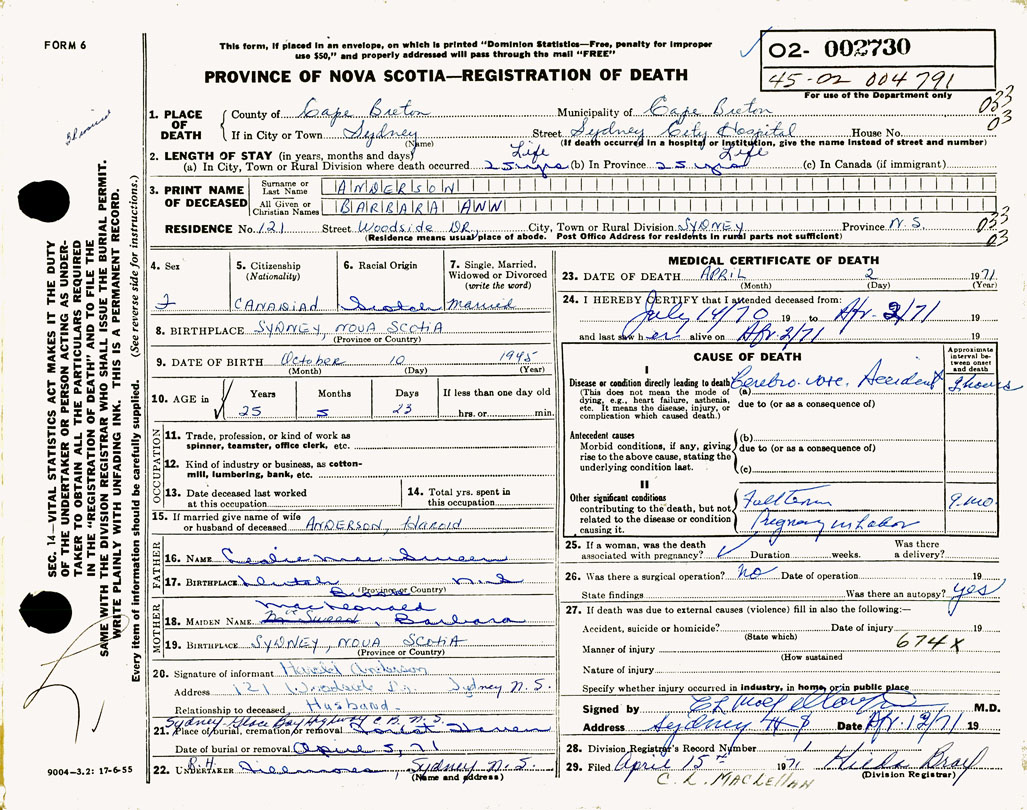 FORM 6
This form, if placed in an envelope, on which is printed "Dominion Statistics—Free, penalty for improper
use $50," and properly addressed will pass through the mail "FREE"
PROVINCE OF NOVA SCOTIA—REGISTRATION OF DEATH
02- 002730
45-02 004791
For use of the Department only
033
03
1. PLACE OF DEATH
County of Cape Breton Municipality of Cape Breton
If in City or Town Sydney Street Sydney City Hospital House No.
(Name) (If death occurred in a hospital or institution, give the name instead of street and number)
2. LENGTH OF STAY (in years, months and days) Life Life
(a) In City, Town or Rural Division where death occurred 25 yrs (b) In Province 25 yrs (c) In Canada (if immigrant)
3. PRINT NAME OF DECEASED
Surname or Last Name ANDERSON
All Given or Christian Names BARBARA ANN
RESIDENCE No. 121 Street Woodside DR. City, Town or Rural Division SYDNEY Province N.S.
033
03
(Residence means usual place of abode. Post Office Address for residents in rural parts not sufficient)
4. Sex 5. Citizenship (Nationality) 6. Racial Origin 7. Single, Married, Widowed or Divorced (write the word)
F CANADIAN Scotch Married
8. BIRTHPLACE SYDNEY, NOVA SCOTIA
(Province or Country)
9. DATE OF BIRTH October 10 1945
(Month) (Day) (Year)
10. AGE in Years Months Days If less than one day old
25 5 23 hrs. or min.
OCCUPATION
11. Trade, profession, or kind of work as spinner, teamster, office clerk, etc.
12. Kind of industry or business, as cotton-mill, lumbering, bank, etc.
13. Date deceased last worked at this occupation
14. Total yrs. spent in this occupation
15. If married give name of wife or husband of deceased ANDERSON, Harold
FATHER
16. NAME Leslie Mac
17. BIRTHPLACE N.S.
(Province or Country)
MOTHER
MacLeonald
18. MAIDEN NAME Barbara
19. BIRTHPLACE SYDNEY, NOVA SCOTIA
(Province or Country)
20. Signature of informant Harold Anderson
Address 121 Woodside Dr. Sydney N.S.
Relationship to deceased Husband
Sydney Glace Bay Highway C.B. N.S.
21. Place of burial, cremation or removal Forest Haven
Date of burial or removal April 5, 71
22. UNDERTAKER R.H. Sydney N.S.
(Name and address)
MEDICAL CERTIFICATE OF DEATH
23. DATE OF DEATH APRIL 2 1971
(Month) (Day) (Year)
24. I HEREBY CERTIFY that I attended deceased from:
July 14/70 19 to Apr. 2/71 19
and last saw her alive on Apr 2/71 19
CAUSE OF DEATH
Approximate interval between onset and death
I
Disease or condition directly leading to death (a) Cerebro. vasc. Accident 9 hours
(This does not mean the mode of dying, e.g., heart failure, asthenia, etc. It means the disease, injury, or complication which caused death.)
due to (or as a consequence of)
Antecedent causes
Morbid conditions, if any, giving rise to the above cause, stating the underlying condition last.
(b)
due to (or as a consequence of)
(c)
II
Other significant conditions
contributing to the death, but not related to the disease or condition causing it.
Full term 9 mo.
Pregnancy in labor
25. If a woman, was the death associated with pregnancy? Duration weeks. Was there a delivery?
26. Was there a surgical operation? no Date of operation 19
State findings Was there an autopsy? yes
27. If death was due to external causes (violence) fill in also the following:—
Accident, suicide or homicide? Date of injury 19
(State which)
Manner of injury 674X
(How sustained
Nature of injury
Specify whether injury occurred in industry, in home, or in public place
Signed by M.D.
Address Sydney N S Date Apr. 19
28. Division Registrar's Record Number 1
29. Filed April 15th 1971 Hilda Bray
(Division Registrar)
C. L. MACLELLAN
9004—3.2: 17-6-55
SEC. 14—VITAL STATISTICS ACT MAKES IT THE DUTY
OF THE UNDERTAKER OR PERSON ACTING AS UNDER-
TAKER TO OBTAIN ALL THE PARTICULARS REQUIRED
IN THE "REGISTRATION OF DEATH" AND TO FILE THE
SAME WITH THE DIVISION REGISTRAR WHO SHALL ISSUE THE BURIAL PERMIT.
WRITE PLAINLY WITH UNFADING INK. THIS IS A PERMANENT RECORD.
Every item of information should be carefully supplied. (See reverse side for instructions.)